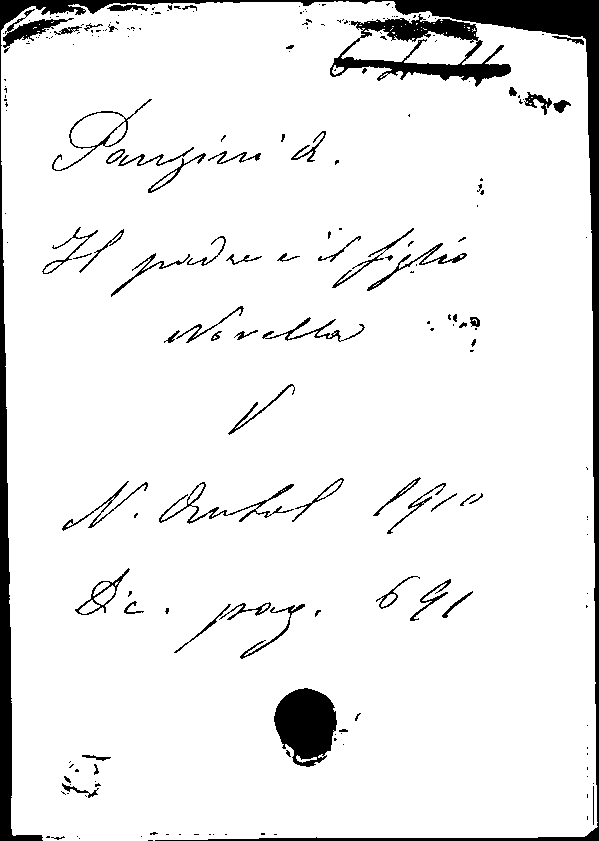 Panzini A.
Il padre e il figlio
Novella
V
N. Antol 1910
Dic. pag. 691